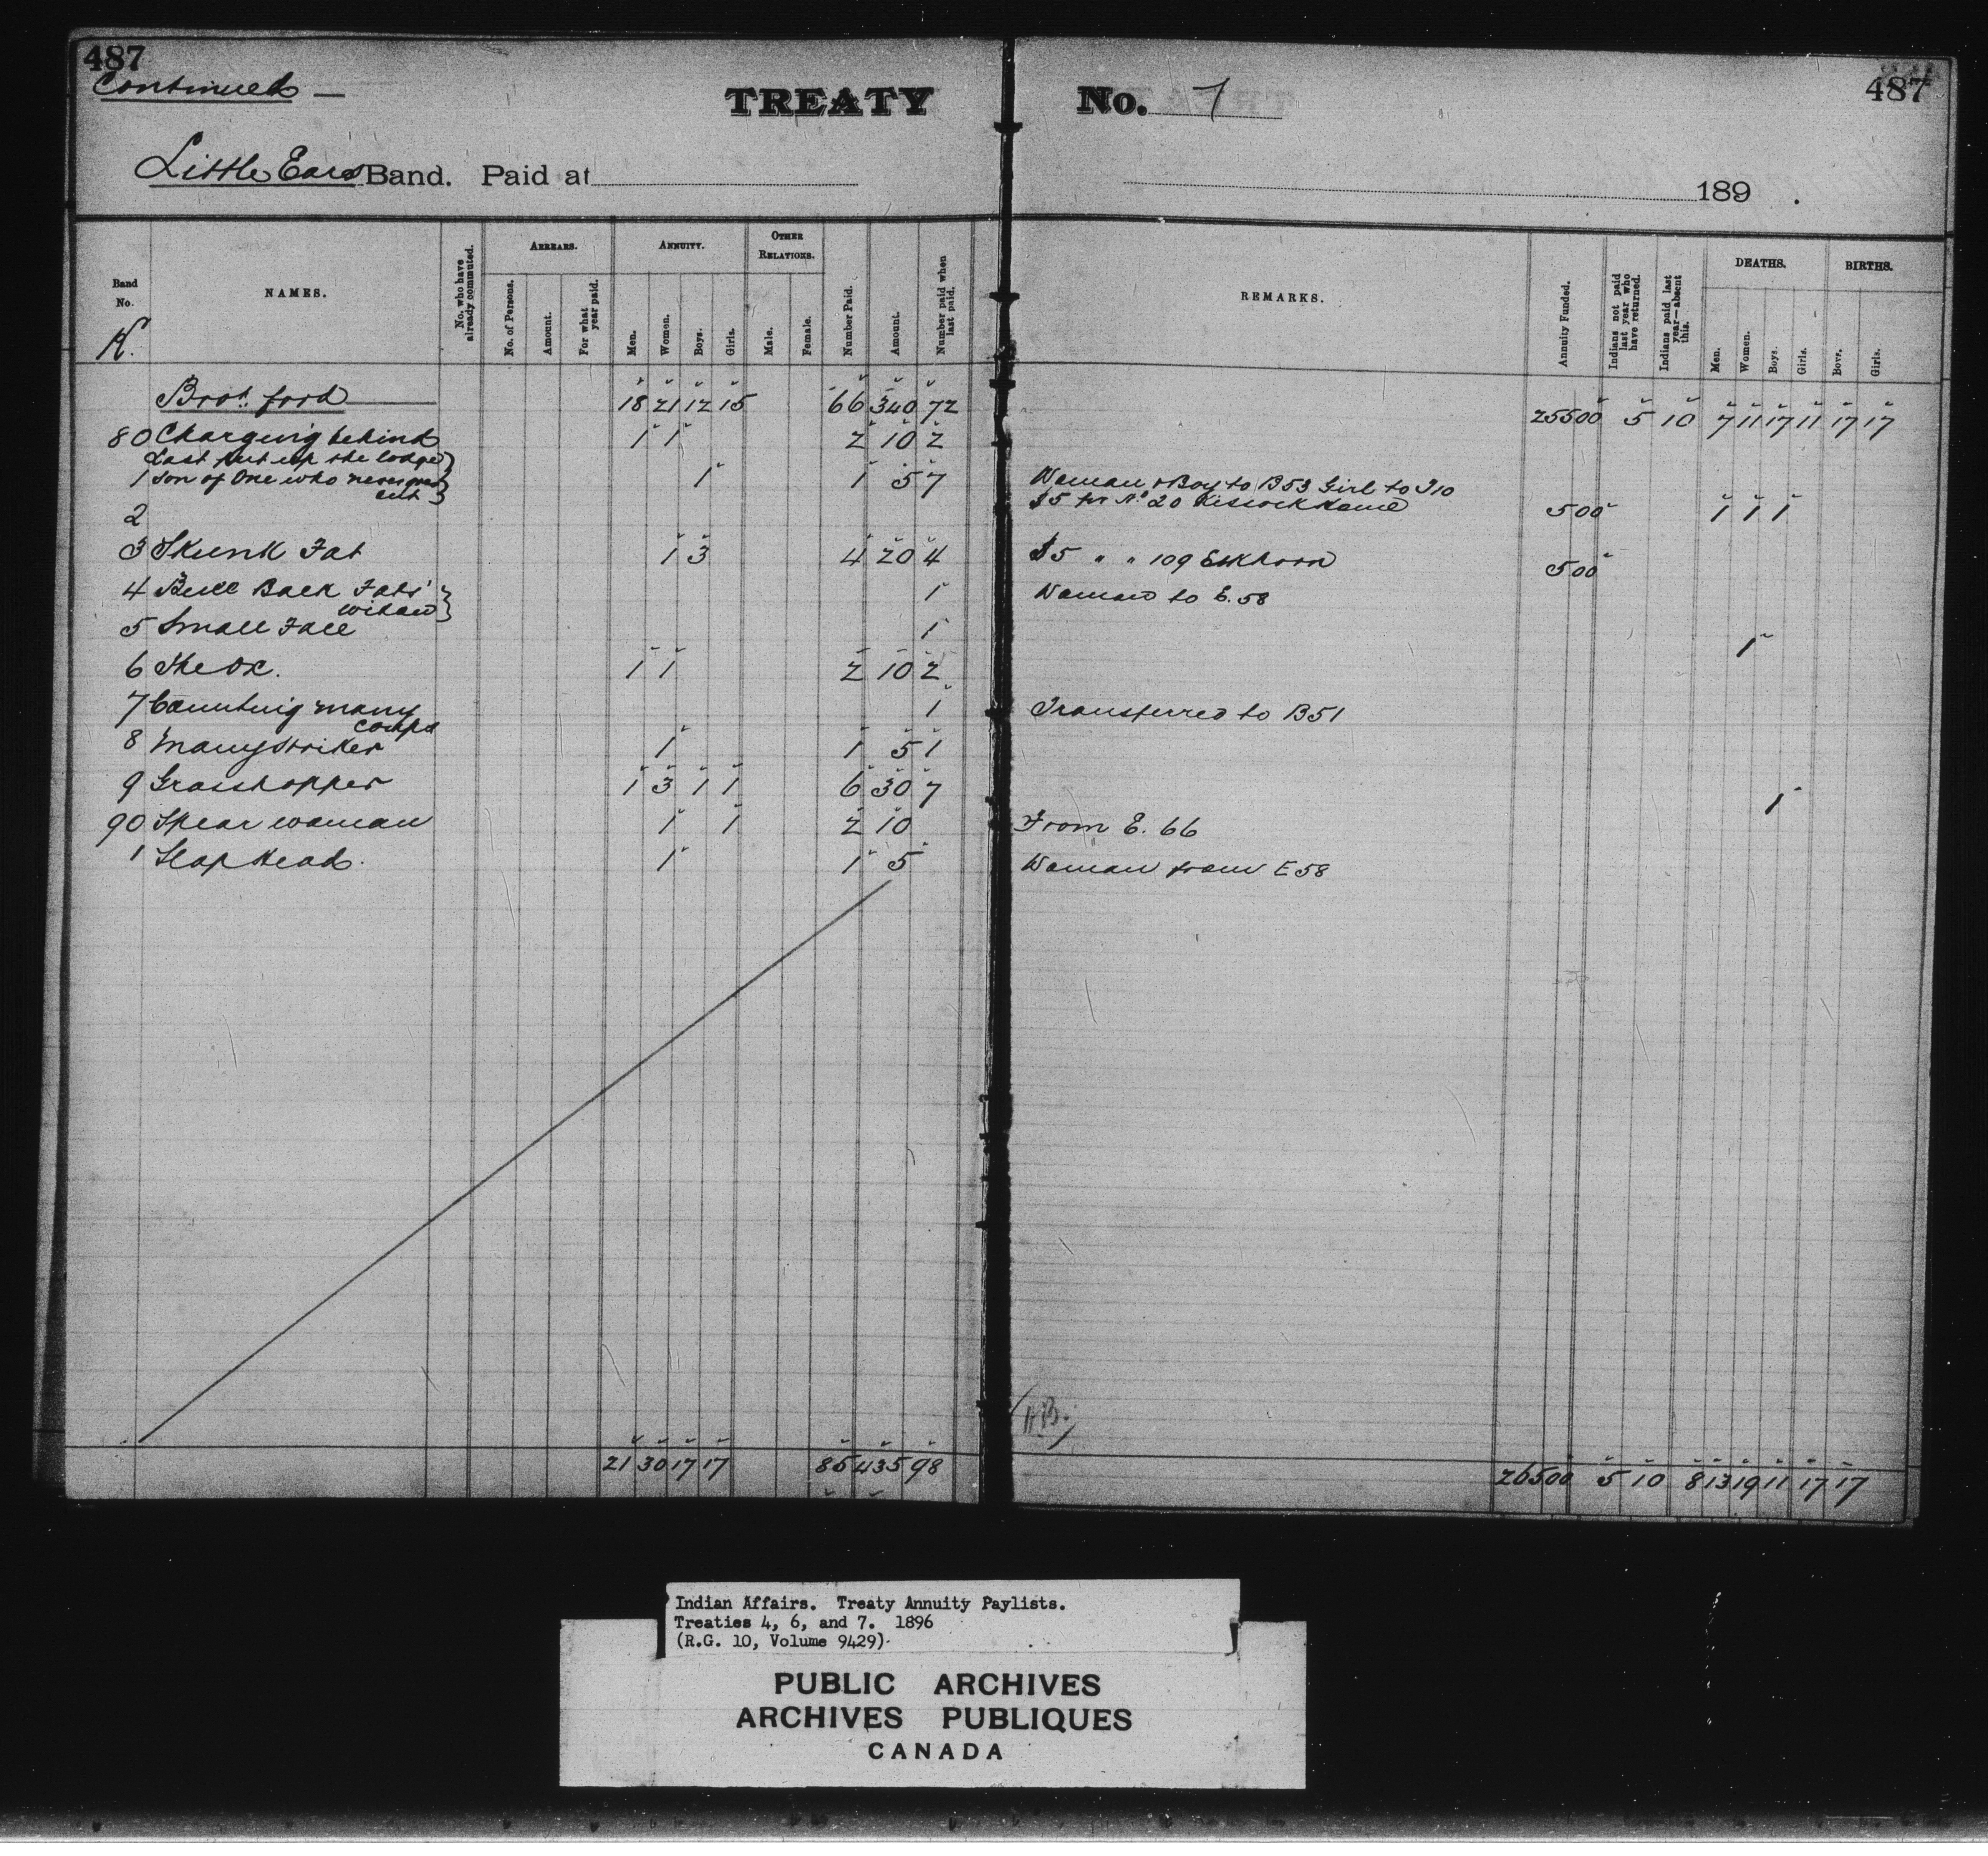 487
Continued —
TREATY No. 7
487
Little Ears Band. Paid at 189 .
Band No. K.
NAMES.
No. who have already commuted.
ARREARS.
No. of Persons.
Amount.
For what year paid.
ANNUITY.
Men.
Women.
Boys.
Girls.
OTHER RELATIONS.
Male.
Female.
Number Paid.
Amount.
Number paid when last paid.
REMARKS.
Annuity Funded.
Indians not paid last year who have returned.
Indians paid last year—absent this.
DEATHS.
Men.
Women.
Boys.
Girls.
BIRTHS.
Boys.
Girls.
Brot. ford 18 21 12 15 66 340 72 25500 5 10 7 11 17 11 17 17
80 Charging behind 1 1 2 10 2
Last put up the lodge
1 Son of One who never goes out 1 1 5 7 Woman & Boy to B53 Girl to J10
2 $5 for No 20 500 1 1 1
3 Skunk Fat 1 3 4 20 4 $5 " " 109 Elkhorn 500
4 Bull Back Fats' widow 1 Woman to E.58
5 Small Face 1 1
6 The Ox. 1 1 2 10 2
7 Counting many coups 1 Transferred to B51
8 Many Striker 1 1 5 1
9 Grasshopper 1 3 1 1 6 30 7 1
90 Spear woman 1 1 2 10 From E. 66
1 Slap Head. 1 1 5 Woman from E58
21 30 17 17 85 435 98 26500 5 10 8 13 19 11 17 17
Indian Affairs. Treaty Annuity Paylists.
Treaties 4, 6, and 7. 1896
(R.G. 10, Volume 9429)
PUBLIC ARCHIVES
ARCHIVES PUBLIQUES
CANADA